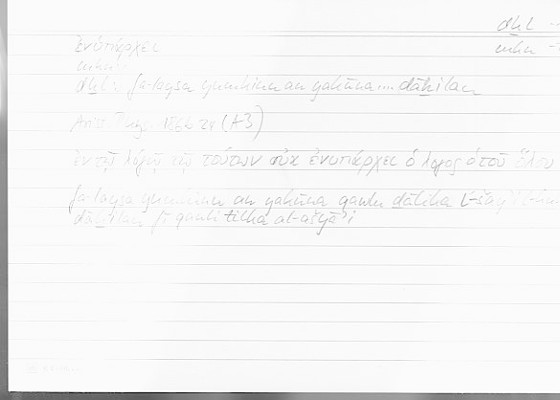 dḫl
mkn
ἐνυπάρχει
mkn
dḫl : fa-laysa yumkinu an yakūna .... dāḫilan
Arist. Phys. 186b 24 (A3)
ἐν τῷ λόγῳ τῷ τούτων οὐκ ἐνυπάρχει ὁ λόγος ὁ τοῦ ὅλου
fa-laysa yumkinu an yakūna qawlu ḏālika l-šayʾi
dāḫilan fī qawli tilka al-ašyāʾi